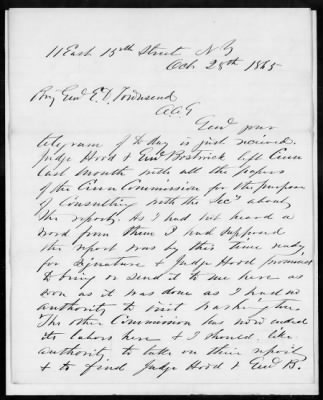 11 East 15th Street N.Y
Oct. 28th 1865
Brig Genl E. D. Townsend
A A G
Genl your
telegram of to day is just received.
Judge Hood & Genl Bostwick left Cinn
last month with all the papers
of the Cinn Commission for the purpose
of Consulting with the Secy about
the report. As I had not heard a
word from them I had supposed
the report was by this time ready
for signature & Judge Hood promised
to bring or send it to me here as
soon as it was done as I had no
authority to visit Washington.
The other Commission has now ended
its labors here & I should like
authority to take on their report
& to find Judge Hood & Genl B.